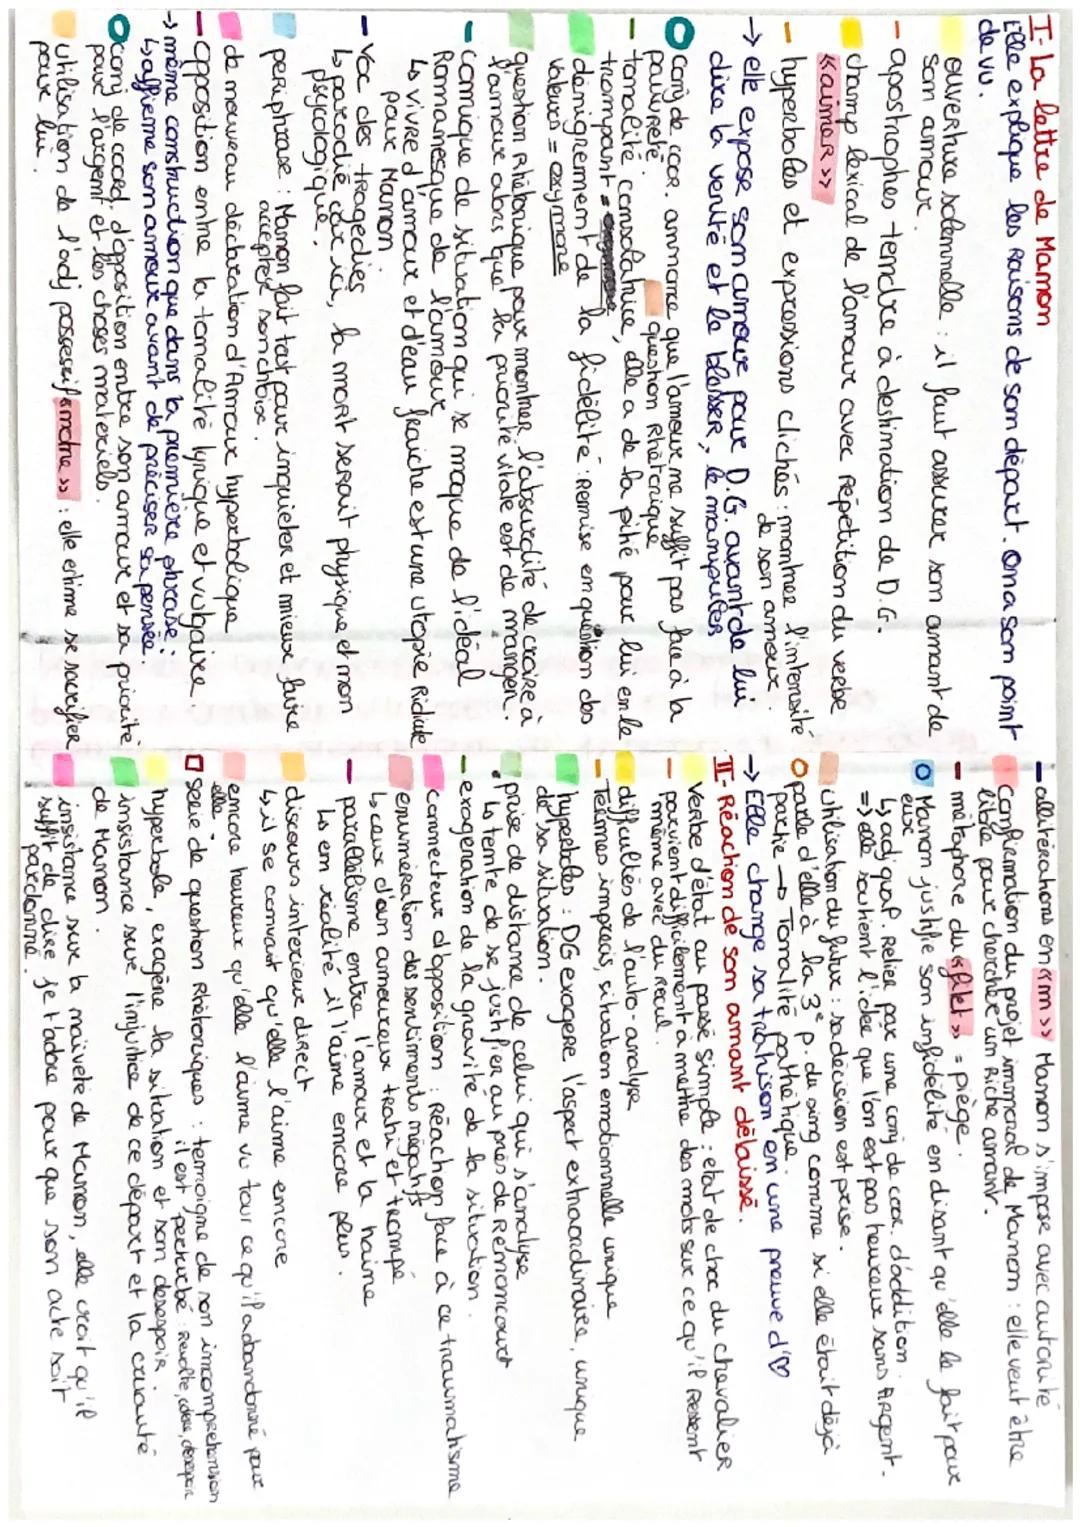 I- La lettre de Manon
Elle explique les raisons de son départ. On a son point
de vu.
ouverture solennelle : il faut assurer son amant de
son amour.
- apostrophes tendre à destination de D.G.
champ lexical de l'amour avec répétition du verbe
« aimer »
- hyperboles et expressions clichés : montrer l'intensité
de son amour
→ elle expose son amour pour D.G. avant de lui
dire la vérité et le blesser, le manipuler
conj de coor. annonce que l'amour ne suffit pas face à la
pauvreté. question Rhétorique
- tonalité consolatrice, elle a de la pitié pour lui en le
trompant =
dénigrement de la fidélité : remise en question des
valeurs = oxymore
question Rhétorique pour montrer l'absurdité de croire à
l'amour alors que la priorité vitale est de manger.
- comique de situation qui se moque de l'idéal
Romanesque de l'amour
↳ vivre d'amour et d'eau fraiche est une utopie Ridicule
pour Manon
- Voc des tragédies
↳ parodié car ici, la mort serait physique et non
psycologique.
periphrase : Manon fait tout pour inquieter et mieux faire
accepter son choix.
de nouveau déclaration d'Amour hyperbolique
- Opposition entre la tonalité lyrique et vulgaire.
→ même construction que dans la première phrase :
↳ affirme son amour avant de préciser sa pensée
conj de coord. d'opposition entre son amour et sa priorité
pour l'argent et les choses materiels.
utilisation de l'adj possessif « notre » : elle estime se sacrifier
pour lui.
- allitérations en « m » Manon s'impose avec autorité
Confirmation du projet immoral de Manon : elle veut être
libre pour chercher un Riche amant.
- métaphore du « filet » = piège.
Manon justifie son infidélité en disant qu'elle le fait pour
eux
↳ adj qual. Reliée par une conj de coor. d'addition.
⇒ elle soutient l'idée que l'on est pas heureux sans Argent.
utilisation du futur : sa décision est prise.
parle d'elle à la 3e p. du sing comme si elle était déjà
partie → Tonalité pathétique.
→ Elle change sa trahison en une preuve d'♡
II- Réaction de son amant délaissé.
Verbe d'état au passé simple : état de choc du chevalier
parvient difficilement a mettre des mots sur ce qu'il ressent
même avec du recul.
difficultés de l'auto-analyse
- Termes imprécis, situation emotionnelle unique
hyperboles : DG exagere l'aspect extraordinaire, unique
de sa situation.
prise de distance de celui qui s'analyse
↳ tente de se justifier au près de Renoncourt
- exageration de la gravité de la situation.
Connecteur d'opposition : Réaction face à ce traumatisme
enumération des sentiments négatifs
↳ ceux d'un amoureux trahi et trompé
- parallélisme entre l'amour et la haine
↳ en réalité il l'aime encore plus.
discours interieur direct
↳ il se convainc qu'elle l'aime encore
encore heureux qu'elle l'aime vu tout ce qu'il a abandonné pour
elle.
série de question Rhétoriques : temoigne de son incomprehension
il est perturbé : Revolte, colère, desespoir
hyperbole, exagère la situation et son desespoir.
insistance sur l'injustice de ce départ et la cruauté
de Manon.
insistance sur la naïveté de Manon, elle croit qu'il
suffit de dire je t'adore pour que son acte soit
pardonné.